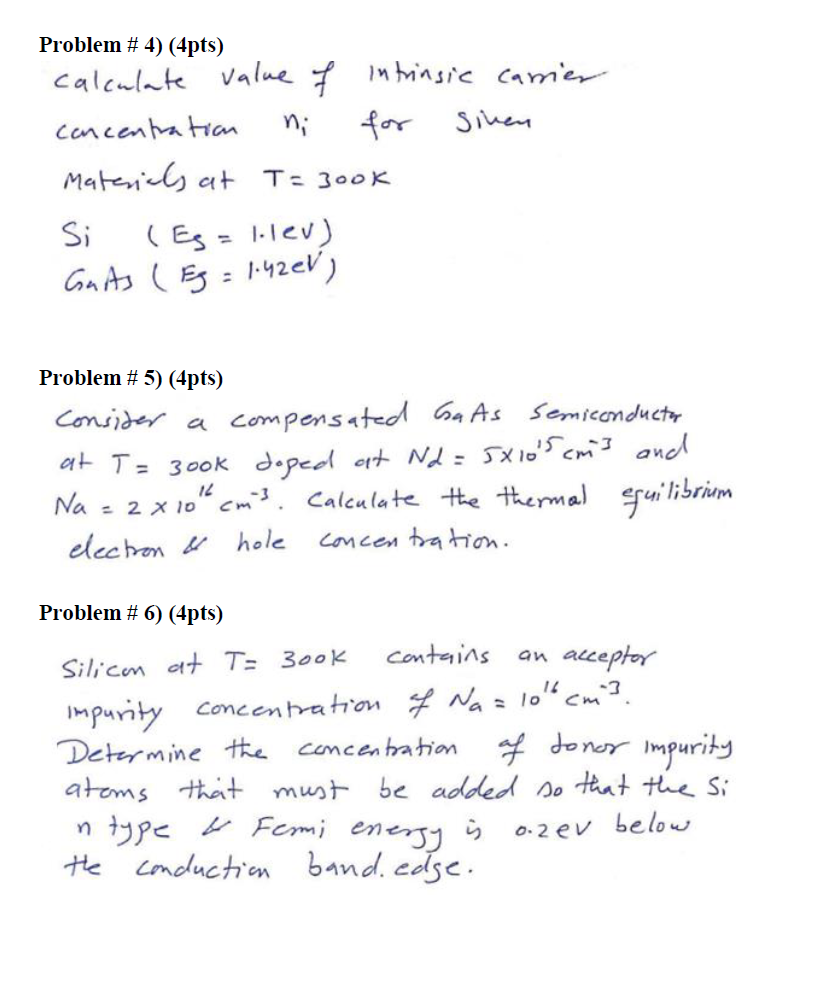 Problem # 4) (4pts)
Calculate value of intrinsic carrier
concentration ni for given
Materials at T = 300K
Si (Eg = 1.1ev)
GaAs (Eg = 1.42eV)
Problem # 5) (4pts)
Consider a compensated GaAs semiconductor
at T = 300k doped at Nd = 5x10¹⁵ cm⁻³ and
Na = 2 x 10¹⁶ cm⁻³. Calculate the thermal equilibrium
electron & hole concentration.
Problem # 6) (4pts)
Silicon at T= 300k contains an acceptor
impurity concentration of Na = 10¹⁶ cm⁻³.
Determine the concentration of donor impurity
atoms that must be added so that the Si
n type & Fermi energy is 0.2ev below
the conduction band. edge.